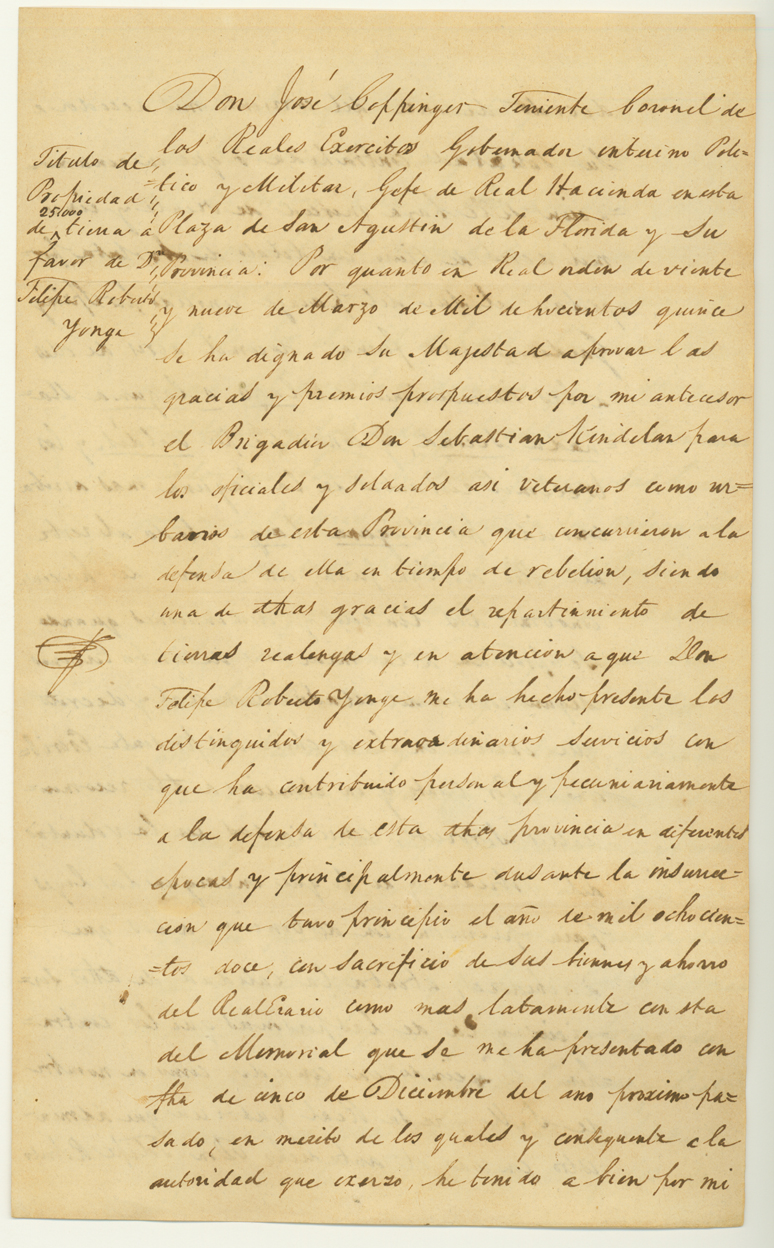 Titulo de
Propiedad
25000
de tierra á
favor de Dn
Felipe Roberto
Yonge
Don José Coppinger Teniente Coronel de
los Reales Exercitos Gobernador interino Poli=
=tico y Militar, Gefe de Real Hacienda en esta
Plaza de San Agustin de la Florida y Su
Provincia: Por quanto en Real orden de viente
y nueve de Marzo de Mil dehocientos quince
se ha dignado Su Majestad aprovar las
gracias y premios prospuestos por mi antecesor
el Brigadier Don Sebastian Kindelan para
los oficiales y soldados asi veteranos como ur=
banos de esta Provincia que concurrieron a la
defensa de ella en tiempo de rebelion, siendo
una de dthas gracias el repartimiento de
tierras realengas y en atencion a que Don
Felipe Roberto Yonge me ha hecho presente los
distinguidos y extraordinarios servicios con
que ha contribuido personal y pecuniariamente
a la defensa de esta dtha provincia en diferentes
epocas y principalmente durante la insurrec=
cion que tuvo principio el año de mil ochocien=
=tos doce, con sacrificio de sus bienes y ahorro
del Real Erario como mas latamente consta
del Memorial que se me ha presentado con
fha de cinco de Diciembre del ano proximo pa=
sado, en merito de los quales y consequente a la
autoridad que exerzo, he tenido a bien por mi